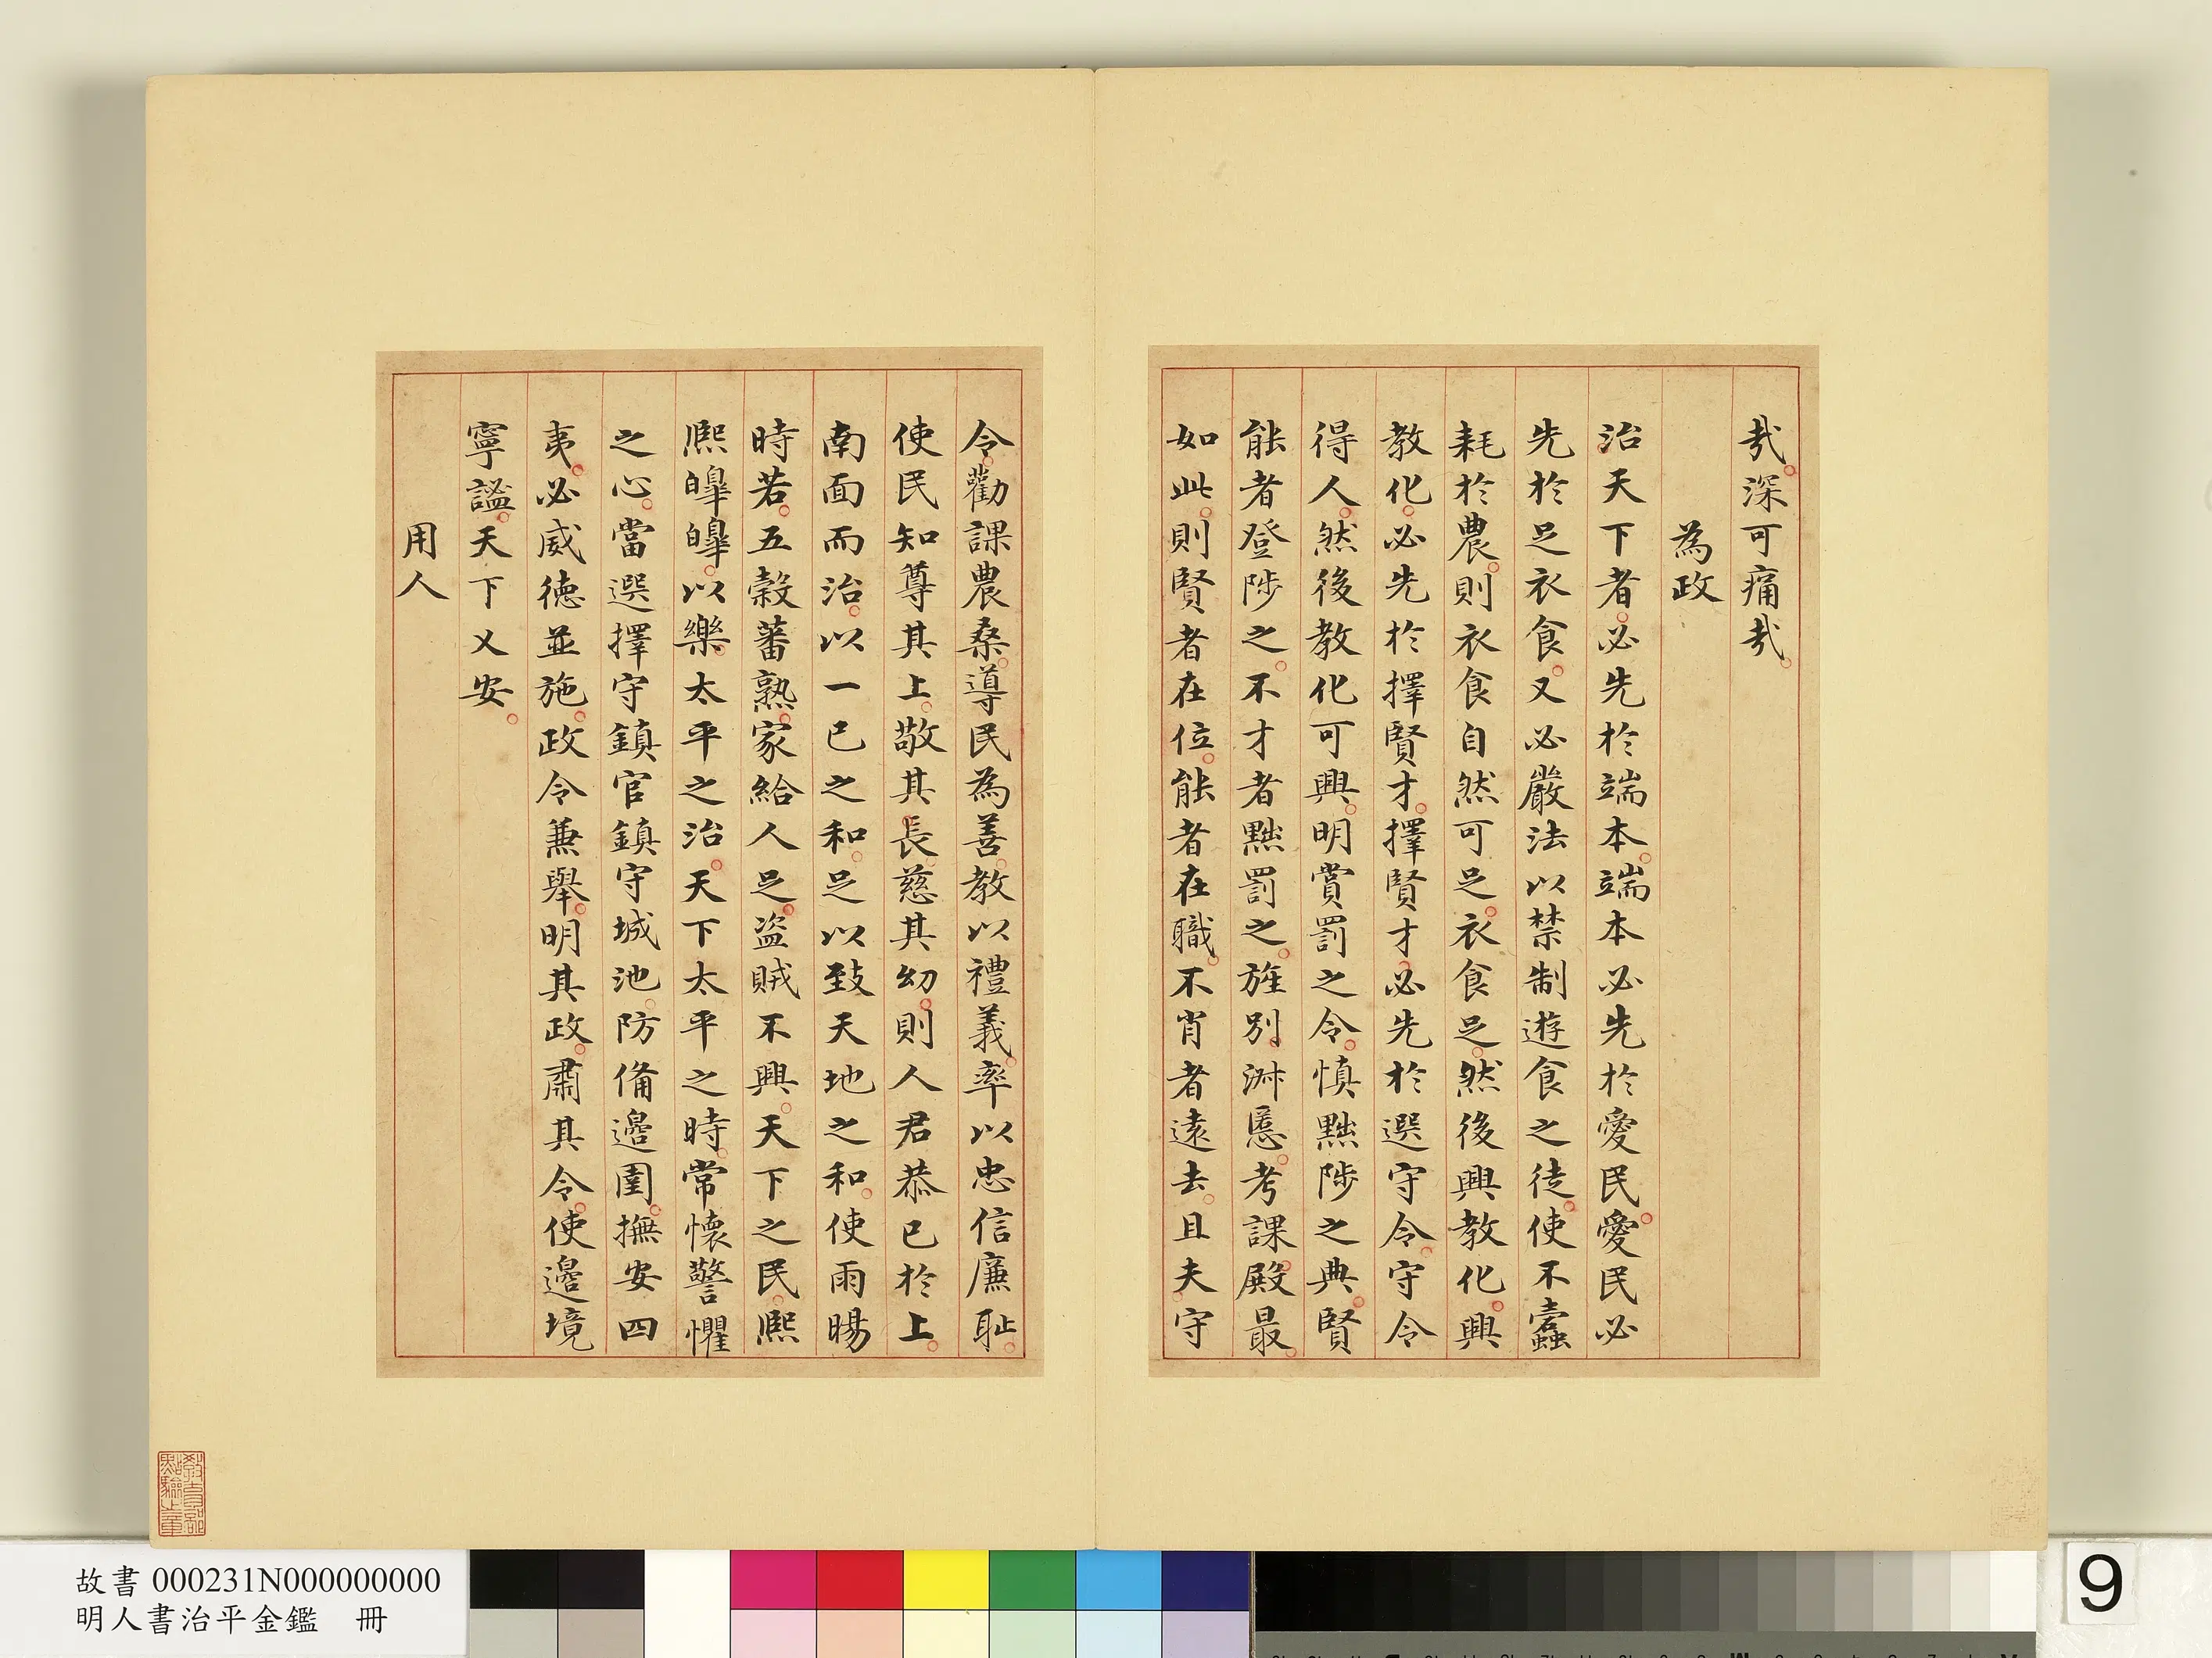 哉深可痛哉
為政
治天下者必先於端本端本必先於愛民愛民必
先於足衣食又必嚴法以禁制遊食之徒使不蠹
耗於農則衣食自然可足衣食足然後興教化興
教化必先於擇賢才擇賢才必先於選守令守令
得人然後教化可興明賞罰之令慎黜陟之典賢
能者登陟之不才者黜罰之旌別淑慝考課殿最
如此則賢者在位能者在職不肖者遠去且夫守
令勸課農桑導民為善教以禮義率以忠信廉耻
使民知尊其上敬其長慈其幼則人君恭己於上
南面而治以一己之和足以致天地之和使雨暘
時若五穀蕃熟家給人足盜賊不興天下之民熙
熙皥皥以樂太平之治天下太平之時常懷警懼
之心當選擇守鎮官鎮守城池防備邊圉撫安四
夷必威德並施政令兼舉明其政肅其令使邊境
寧謐天下乂安
用人
教育部
點驗之章
故書 000231N000000000
明人書治平金鑑 冊
9